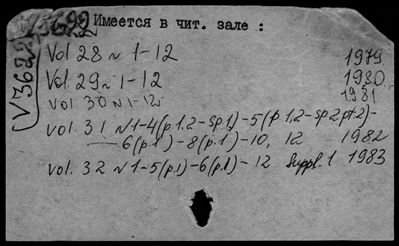 V3622
Имеется в чит. зале :
V3622
Vol 28 N 1-12 1979
Vol. 29 N 1-12 1980
vol 30 N 1-12 1981
vol. 31 N 1-4(p.1.2-Sp.1)-5(p 1,2-sp 2pt2)-
6(p.1)-8(p.1)-10, 12 1982
vol. 32 N 1-5(p.1)-6(p.1)-12 Suppl. 1 1983